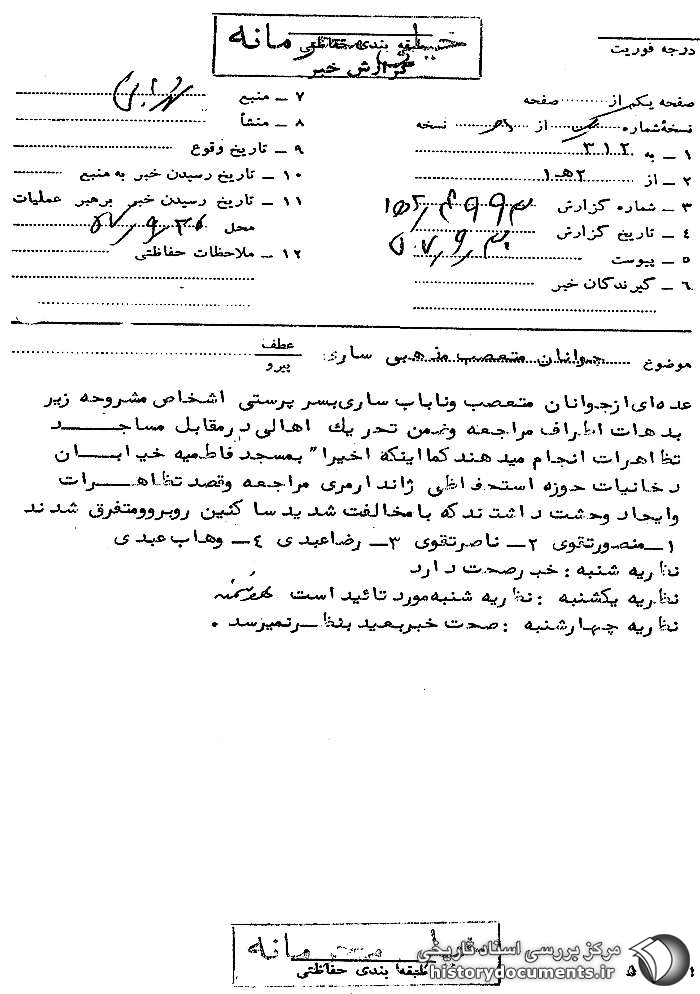 خیلی محرمانه
طبقه بندی حفاظتی
گزارش خبر
درجه فوریت
صفحه یکم از صفحه
نسخهٔ شماره از نسخه
۱ ــ به ۳۱۲
۲ ــ از ۲هـ۱
۳ ــ شماره گزارش
۴ ــ تاریخ گزارش ۵۷٫۹٫۳۰
۵ ــ پیوست
۶ ــ گیرندگان خبر
۷ ــ منبع
۸ ــ منشأ
۹ ــ تاریخ وقوع
۱۰ ــ تاریخ رسیدن خبر به منبع
۱۱ ــ تاریخ رسیدن خبر برهبر عملیات
محل
۱۲ ــ ملاحظات حفاظتی
موضوع جوانان متعصب مذهبی ساری
عطف
پیرو
عده ای ازجوانان متعصب وناباب ساری بسر پرستی اشخاص مشروحه زیر
بدهات اطراف مراجعه وضمن تحریک اهالی درمقابل مساجد
تظاهرات انجام میدهند کما اینکه اخیرا" بمسجد فاطمیه خیابان
دخانیات حوزه استحفاظی ژاندارمری مراجعه وقصد تظاهرات
وایجاد وحشت داشتند که با مخالفت شدید ساکنین روبرو ومتفرق شدند
۱ــ منصورتقوی ۲ــ ناصرتقوی ۳ــ رضاعبدی ۴ــ وهاب عبدی
نظریه شنبه : خبر صحت دارد
نظریه یکشنبه : نظریه شنبه مورد تائید است
نظریه چهارشنبه : صحت خبر بعید بنظر نمیرسد .
خیلی محرمانه
طبقه بندی حفاظتی
مرکز بررسی اسناد تاریخی
historydocuments.ir